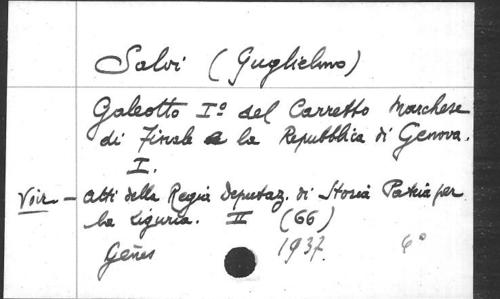 Salvi (Guglielmo)
Galeotto Iº del Carretto Marchese
di Finale e la Repubblica di Genova.
I.
Voir - Atti della Regia Deputaz. di Storia Patria per
la Liguria. II (66)
Gênes 1937. 6°